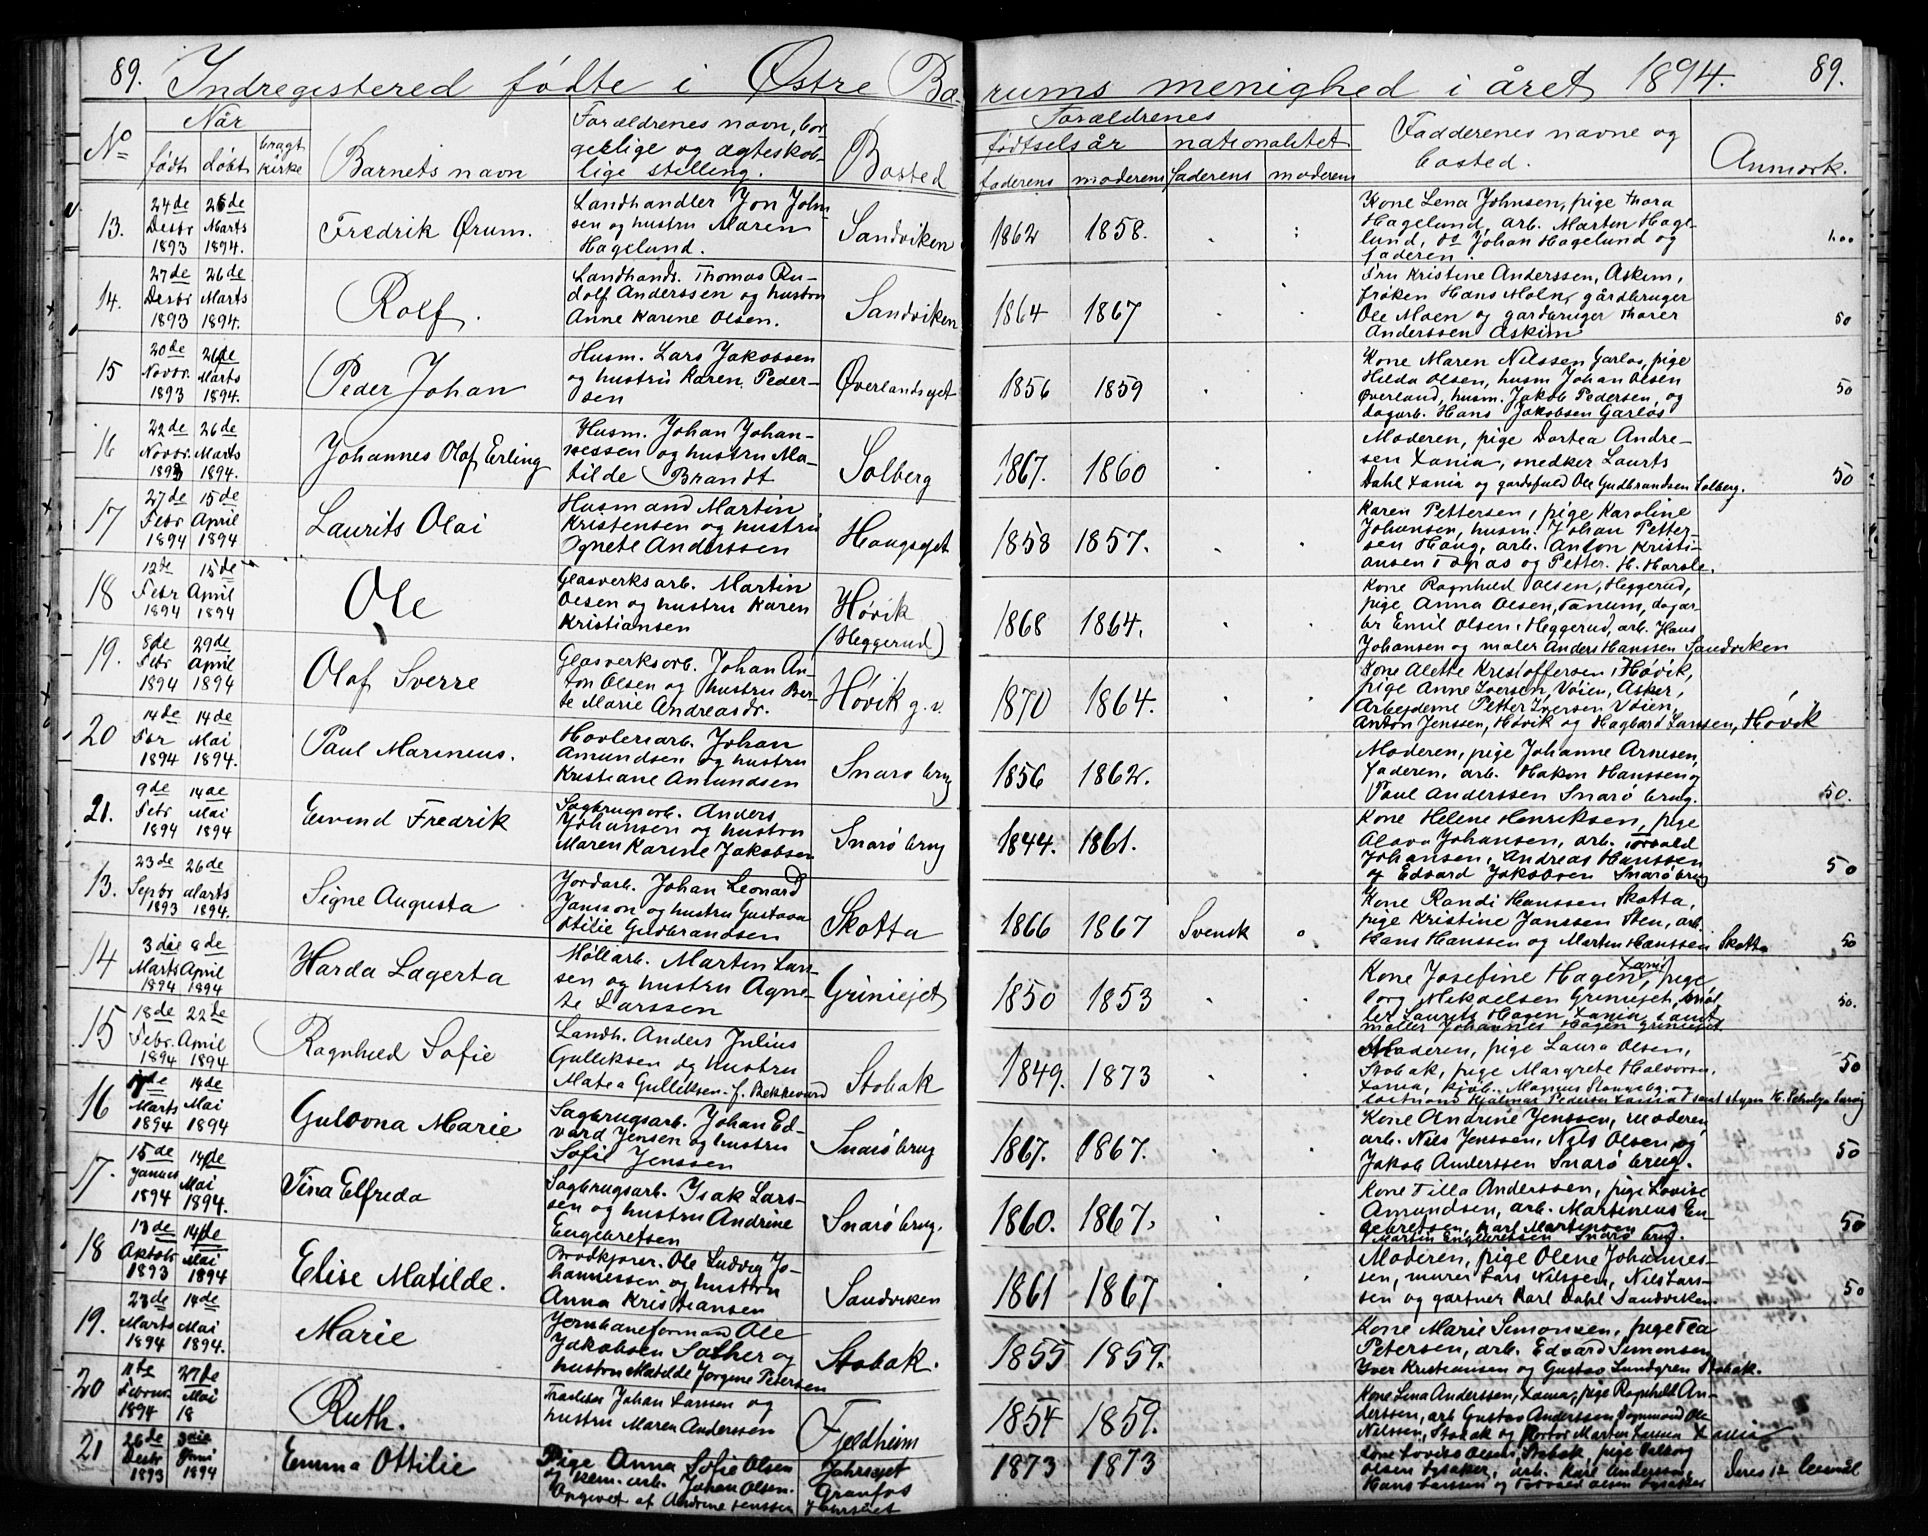 89. Indregistered fødte i Østre Bærums menighed i året 1894. 89.
No
Når
født døbt bragt kirke
Barnets navn
Forældrenes navn, bor-
gerlige og ægteskab-
lige stilling.
Bosted
Forældrenes
fødselsår nationalitet
faderens moderens faderens moderens
Fadderenes navne og
bosted.
Anmærk.
13.
24de Desbr 1893
26de Marts 1894.
Fredrik Ørum.
Landhandler Jon John-
sen og hustru Maren
Hagelund.
Sandviken
1862 1858.
Kone Lena Johnsen, pige Thora
Hagelund, arb. Marten Hage-
lund, do Johan Hagelund og
faderen.
14.
27de Desbr 1893
26de Marts 1894.
Rolf.
Landhand. Thomas Ru-
dolf Anderssen og hustru
Anne Karine Olsen.
Sandviken
1864 1867
Fru Kristine Anderssen, Askim,
frøken Hans Moln, gårdbruger
Ole Moen og gardbruger Thorer
Anderssen Askim
50
15
20de Novbr. 1893
26de Marts 1894.
Peder Johan
Husm. Lars Jakobsen
og hustru Karen Peder-
sen
Øverlandsejet
1856 1859
Kone Maren Nilssen Garløs, pige
Hilda Olsen, husm Johan Olsen
Øverland, husm. Jakob Pedersen, og
dagarb. Hans Jakobsen Garløs
50
16
22de Novbr. 1893
26de Marts 1894.
Johannes Olaf Erling
Husm. Johan Johan-
nessen og hustru Ma-
tilde Brandt
Solberg
1867. 1860
Moderen, pige Dortea Andre-
sen Xania, snedker Laurts
Dahl Xania og gardsfuld Ole Gudbrandsen Solberg.
50
17
27de Febr 1894
15de April 1894
Laurits Olai
Husmand Martin
Kristensen og hustru
Agnete Anderssen
Haugsejet
1858 1857.
Karen Pettersen, pige Karoline
Johansen, husm. Johan Petter-
sen Haug, arb. Anton Kristi-
ansen Topas og Petter. H. Harsle.
18
12de Febr 1894
15de April 1894
Ole
Glasverksarb. Martin
Olsen og hustru Karen
Kristiansen
Høvik
(Heggerud)
1868 1864.
Kone Ragnhild Olsen, Heggerud,
pige Anna Olsen, Tanum, dagar-
br Emil Olsen, Heggerud, arb. Hans
Johansen og maler Anders Hanssen Sandviken
19.
8de Febr 1894
29de April 1894
Olaf Sverre
Glasverksarb. Johan An-
ton Olsen og hustru Ber-
te Marie Andreasdr.
Høvik g. v.
1870 1864.
Kone Alette Kristoffersen, Høvik,
pige Anne Iversen, Vøien, Asker,
Arbejderne Petter Iversen Vøien,
Anton Jenssen, Høvik og Hagbard Larssen, Høvik
20
14de Febr 1894
14de Mai 1894.
Paul Marineus.
Høvleriarb. Johan
Amundsen og hustru
Kristiane Amundsen
Snarø brug
1856 1862.
Moderen, pige Johanne Arnesen,
faderen, arb. Hakon Hanssen og
Paul Anderssen Snarø brug.
50.
21.
9de Febr 1894
14de Mai 1894
Eivind Fredrik
Sagbrugsarb. Anders
Johansen og hustru
Maren Karine Jakobsen
Snarø brug
1844. 1861.
Kone Helene Henriksen, pige
Alava Johansen, arb. Torvald
Johansen, Andreas Hanssen
og Edvard Jakobsen Snarø brug
50
13.
23de Sepbr 1893
26de Marts 1894.
Signe Augusta
Jordarb. Johan Leonard
Jansson og hustru Gustava
Otilie Gudbrandsen
Skotta
1866 1867 Svensk
Kone Randi Hanssen Skotta,
pige Kristine Janssen Sten, arb.
Hans Hanssen og Martin Hanssen Skotta
50
14
3die Marts 1894
8de April 1894
Harda Lagerta
Møllarb. Marten Lars-
sen og hustru Agne-
te Larssen
Griniejet
1850 1853
Kone Josefine Hagen, Xania, pige
Borg Mikaelsen Griniejet, møl
ler Laurits Hagen Xania samt
møller Johannes Hagen Griniejet
50.
15
18de Febr. 1894
22de April 1894
Ragnhild Sofie
Landh. Anders Julius
Gulliksen og hustru
Matea Gulliksen f. Bekkevard
Stabak
1849. 1873
Moderen, pige Laura Olsen,
Stabak, pige Margrete Halvorsen
Xania, kjøb. Magnus Stangebg. og
Hjalmar Pedersen Xania
50
16
Marts 1894
14de Mai 1894
Gulovna Marie
Sagbrugsarb. Johan Ed-
vard Jensen og hustru
Sofie Jenssen
Snarø brug
1867. 1867.
Kone Andrine Jenssen, moderen
arb. Nils Jenssen, Nils Olsen og
Jakob Anderssen Snarø brug.
50
17.
15de Januar 1894
14de Mai 1894.
Tina Elfreda
Sagbrugsarb. Isak Lars-
sen og hustru Andrine
Engebretsen
Snarø brug.
1860. 1867.
Kone Tilla Anderssen, pige Lovise
Amundsen, arb. Martinius En-
gebretsen, Karl Martinsen og
Martin Engebretsen Snarø brug.
50
18
13de Aktobr 1893
14de Mai 1894
Elise Matilde.
Brødkjører. Ole Ludvig Jo-
hannessen og hustru
Anna Kristiansen
Sandviken
1861 1867
Moderen, pige Olene Johannes-
sen, murer Lars Nilssen, Nils Lars-
sen og gartner Karl Dahl Sandviken.
50
19.
23de Marts 1894
14de Mai 1894.
Marie
Jernbaneformand Ole
Jakobsen Sæther og
hustru Matilde Jørgine Petersen
Stabak.
1855 1859.
Kone Marie Simonsen, pige Tea
Petersen, arb. Edvard Simonsen
Iver Kristiansen og Gustav Lundgren Stabak.
20
11te Februar 1894
27de Mai 18
Ruth.
Johan Larssen og
hustru Maren Anderssen
Fjeldheim
1854 1859.
Kone Lina Anderssen, Xania, pige Ragnhill An-
derssen, arb Gustav Anderssen, Ole
Nilssen, Stabak og Marten Xania
21
26de Desbr 1893
3die Juni 1894
Emma Ottilie
Pige Anna Sofie Olsen
og kem. arb. Johan Olsen.
Opgivet af Andrine Jenssen
Jahrsejet
Granfos
Jahrsejet
1873 1873
Kone Lovise Olsen, Stabak, pige Valborg
Olsen Lysaker, arb. Karl Anderssen,
Hans Larssen og Torvald Olsen Lysaker
Deres 1te leiemål